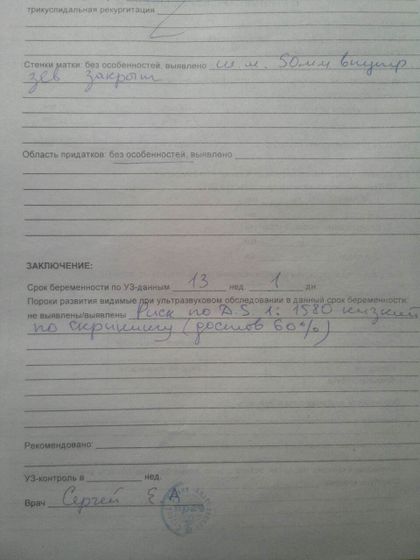 трикуспидальная рекургитация
Стенки матки: без особенностей, выявлено ш.м. 50мм внутр
зев закрыт
Область придатков: без особенностей, выявлено
ЗАКЛЮЧЕНИЕ:
Срок беременности по УЗ-данным 13 нед 1 дн
Пороки развития видимые при ультразвуковом обследовании в данный срок беременности:
не выявлены/выявлены Риск по D.S 1: 1580 низкий
по скринингу (достов 60%)
Рекомендовано:
УЗ-контроль в нед.
Врач Сергей Е.А